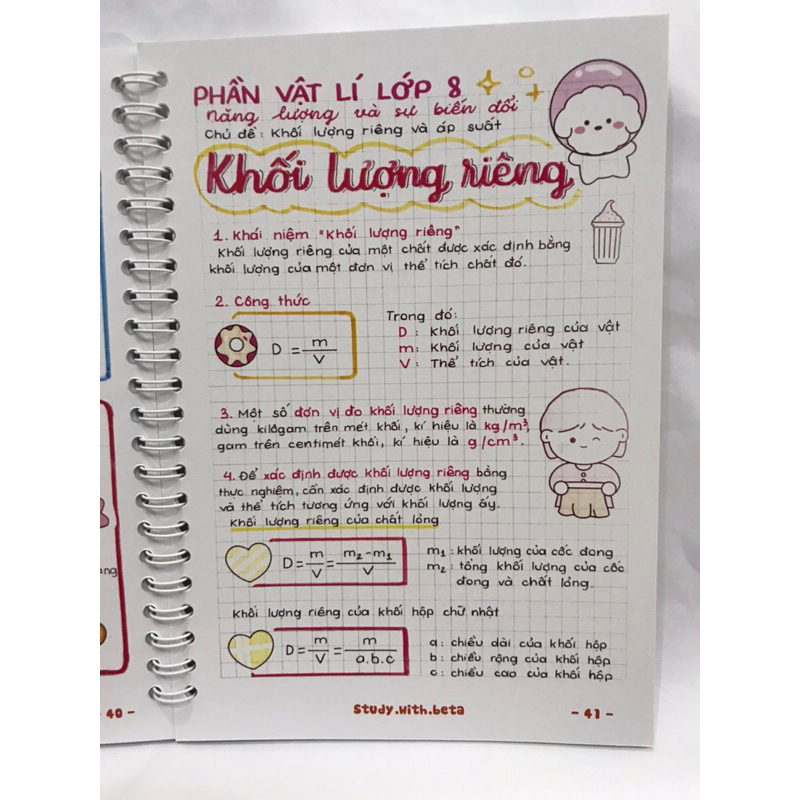 PHẦN VẬT LÍ LỚP 8
năng lượng và sự biến đổi
Chủ đề: Khối lượng riêng và áp suất
Khối lượng riêng
1. Khái niệm "Khối lượng riêng"
Khối lượng riêng của một chất được xác định bằng
khối lượng của một đơn vị thể tích chất đó.
2. Công thức
D = m/V
Trong đó:
D: Khối lượng riêng của vật
m: Khối lượng của vật
V: Thể tích của vật.
3. Một số đơn vị đo khối lượng riêng thường
dùng kilôgam trên mét khối, kí hiệu là kg/m³,
gam trên centimét khối, kí hiệu là g/cm³.
4. Để xác định được khối lượng riêng bằng
thực nghiệm, cần xác định được khối lượng
và thể tích tương ứng với khối lượng ấy.
Khối lượng riêng của chất lỏng
D = m/V = m₂-m₁/V
m₁: khối lượng của cốc đong
m₂: tổng khối lượng của cốc
đong và chất lỏng.
Khối lượng riêng của khối hộp chữ nhật
D = m/V = m/a.b.c
a: chiều dài của khối hộp
b: chiều rộng của khối hộp
c: chiều cao của khối hộp
ang
- 40 -
Study.with.beta
- 41 -